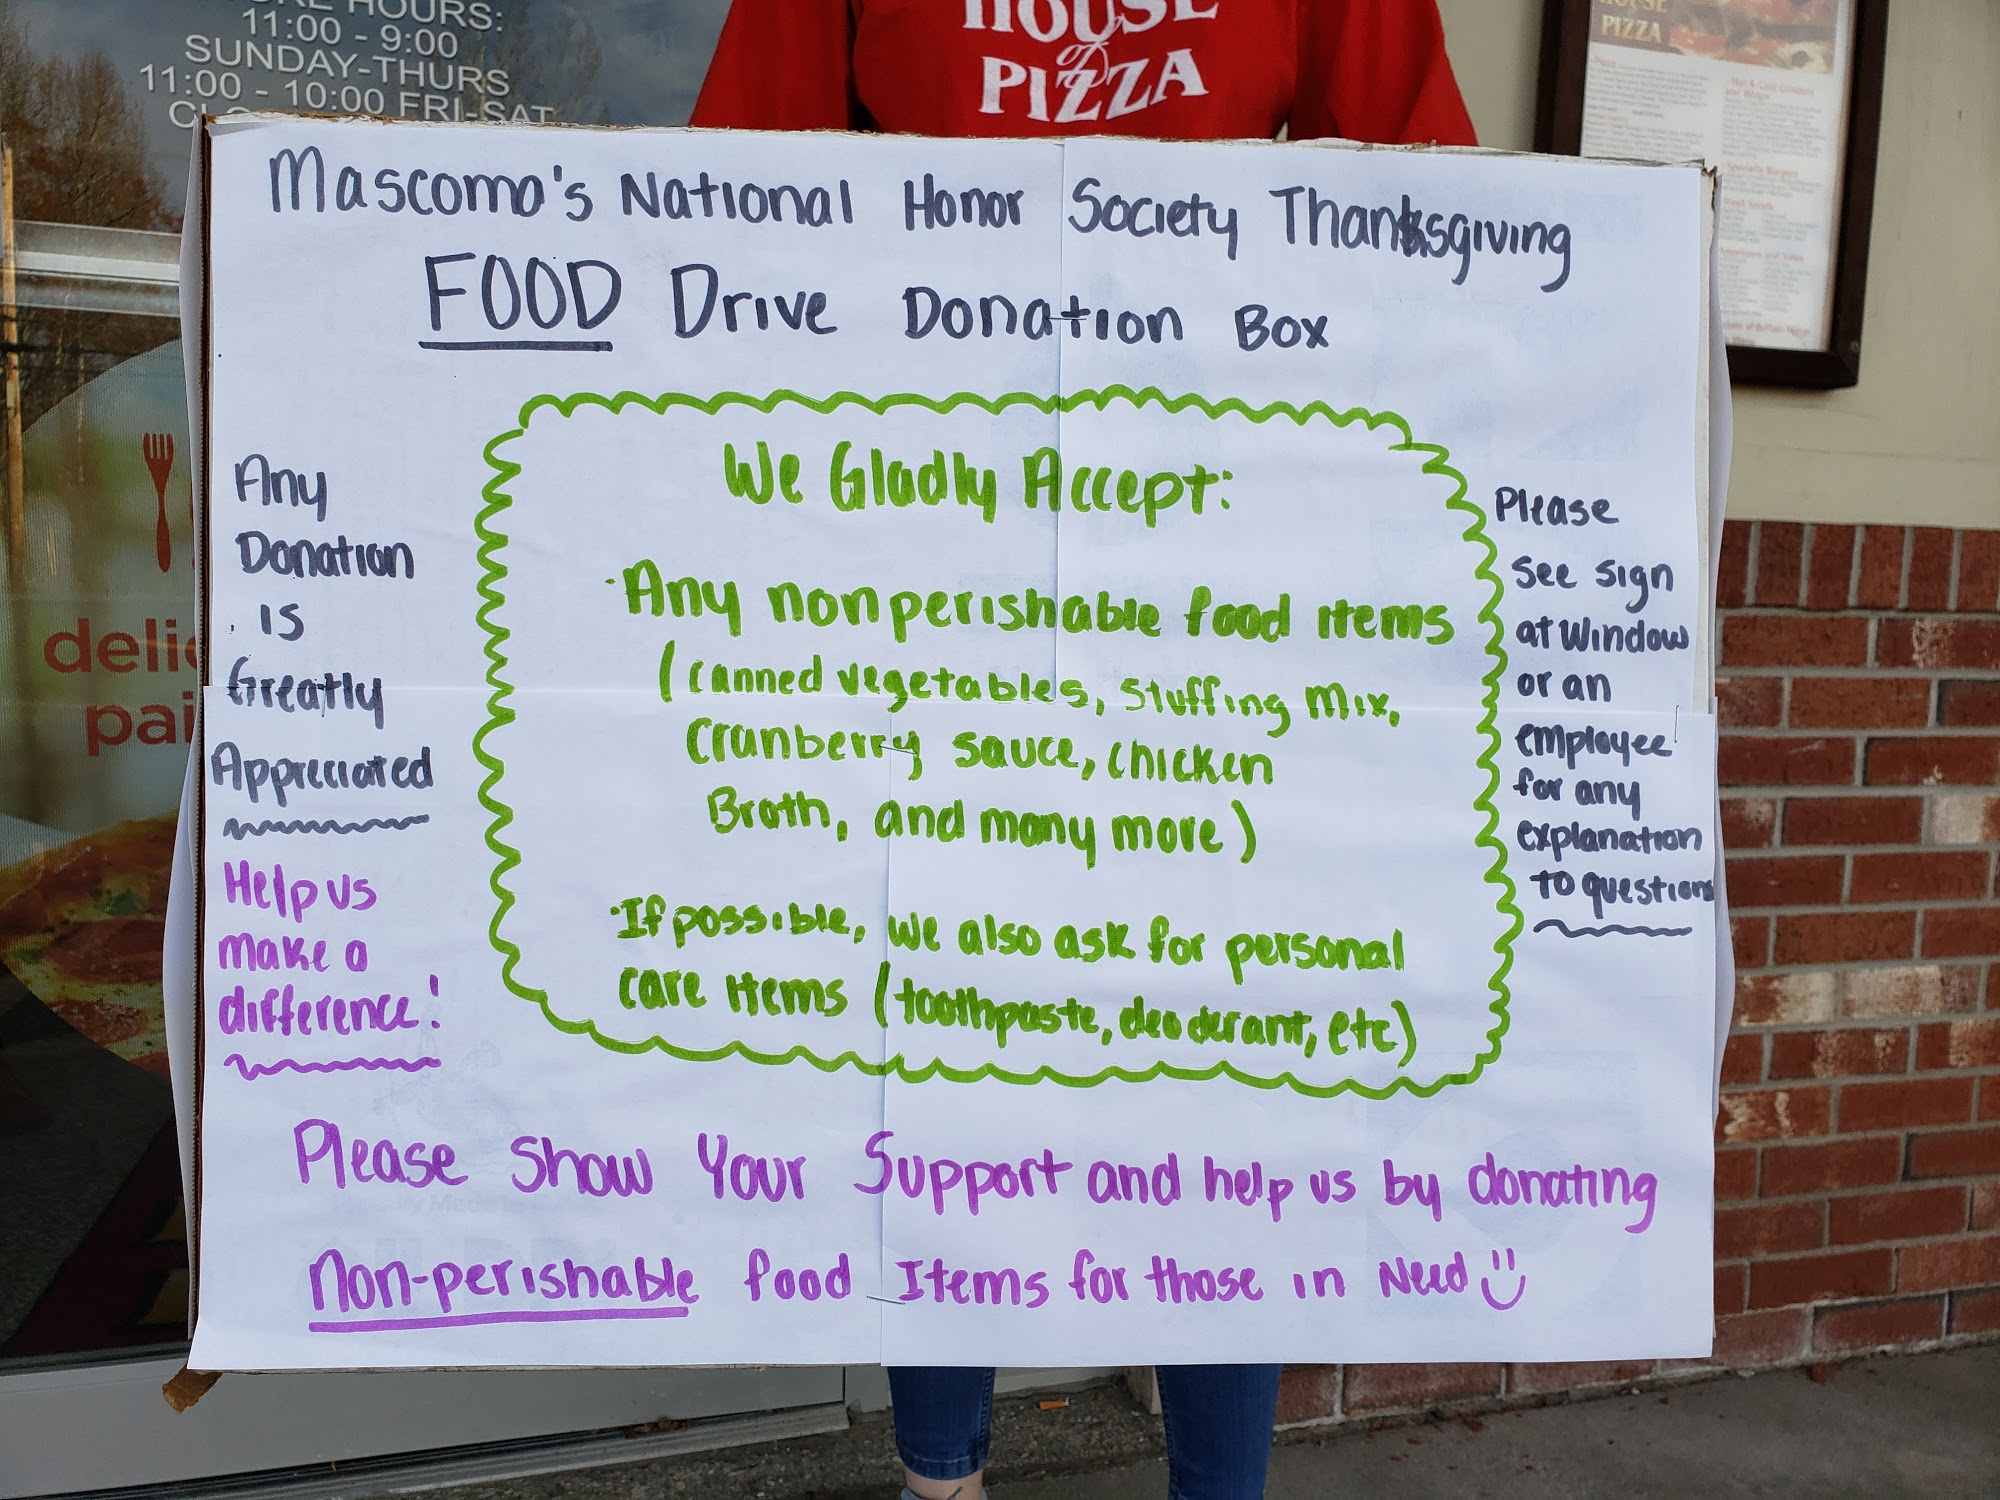 HOURS:
11:00 - 9:00
SUNDAY-THURS
11:00 - 10:00 FRI-SAT
HOUSE
of
PIZZA
PIZZA
Mascoma's National Honor Society Thanksgiving
FOOD Drive Donation Box
Any
Donation
is
Greatly
Appreciated
Help us
make a
difference!
We Gladly Accept:
·Any nonperishable food items
(canned vegetables, stuffing mix,
cranberry sauce, chicken
Broth, and many more)
·If possible, we also ask for personal
care items (toothpaste, deoderant, etc)
Please
see sign
at window
or an
employee
for any
explanation
to questions
Please Show Your Support and help us by donating
Non-perishable food Items for those in Need